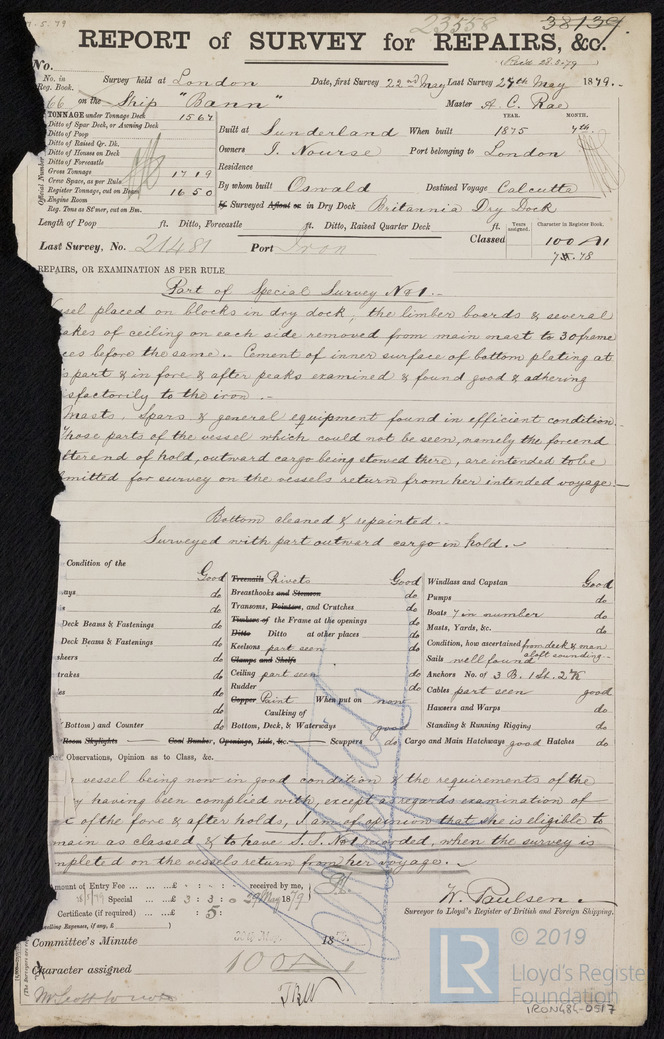 23558 38139
REPORT of SURVEY for REPAIRS, &c.
No.
No. in Reg. Book.
Survey held at London Date, first Survey 22nd May Last Survey 27th May 1879.
66 on the Ship "Bann" Master A. C. Rae
TONNAGE under Tonnage Deck 1567
Ditto of Spar Deck, or Awning Deck
Ditto of Poop
Ditto of Raised Qr. Dk.
Ditto of Houses on Deck
Ditto of Forecastle
Gross Tonnage 1719
Crew Space, as per Rule
Register Tonnage, cut on Beam 1650
Engine Room
Reg. Tons as St'mer, cut on Bm.
Official Number
YEAR. MONTH.
Built at Sunderland When built 1875 7th
Owners J. Nourse Port belonging to London
Residence
By whom built Oswald Destined Voyage Calcutta
If Surveyed Afloat or in Dry Dock Britannia Dry Dock
Length of Poop ft. Ditto, Forecastle ft. Ditto, Raised Quarter Deck ft.
Years assigned. Character in Register Book.
Last Survey, No. 21481 Port Iron Classed 100 A1
7.78
REPAIRS, OR EXAMINATION AS PER RULE
Part of Special Survey No 1.
sel placed on blocks in dry dock, the limber boards & several
akes of ceiling on each side removed from main mast to 30 frame
ces before the same. Cement of inner surface of bottom plating at
s part & in fore & after peaks examined & found good & adhering
sfactorily to the iron.
Masts, Spars & general equipment found in efficient condition.
Those parts of the vessel which could not be seen, namely the fore end
fter end of hold, outward cargo being stowed there, are intended to be
mitted for survey on the vessels return from her intended voyage.
Bottom cleaned & repainted.
Surveyed with part outward cargo in hold.
Condition of the
Good Treenails Rivets Good Windlass and Capstan Good
ays do Breasthooks and Stemson do Pumps do
s do Transoms, Pointers, and Crutches do Boats 7 in number do
Deck Beams & Fastenings do Timbers of the Frame at the openings Masts, Yards, &c. do
Deck Beams & Fastenings do Ditto Ditto at other places do Condition, how ascertained from deck & man aloft sounding
heers do Keelsons part seen do Sails well found
Clamps and Shelfs
trakes do Ceiling part seen do Anchors No. of 3 B. 1 St. 2 K
es do Rudder do Cables part seen good
do Copper Paint When put on now Hawsers and Warps do
Caulking of
Bottom) and Counter do Bottom, Deck, & Waterways good Standing & Running Rigging do
Room Skylights Coal Bunker, Openings, Lids, &c. Scuppers do Cargo and Main Hatchways good Hatches do
Observations, Opinion as to Class, &c.
vessel being now in good condition & the requirements of the
y having been complied with, except as regards examination of
t of the fore & after holds, I am of opinion that she is eligible to
main as classed, & to have S.S. No 1 recorded, when the survey is
mpleted on the vessels return from her voyage.
mount of Entry Fee £ : : received by me,
Special £ 3 : 3 : 0 29 May 1879
Certificate (if required) : 5 :
velling Expenses, if any, £
W. Paulsen
Surveyor to Lloyd's Register of British and Foreign Shipping.
Committee's Minute 18
Character assigned 100A
© 2019
LR Lloyd's Registe
Foundation
IRON484-0517